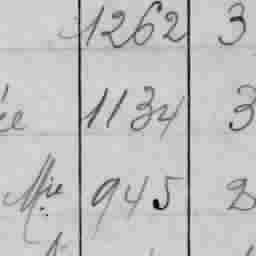 1262 3
ée 1134 3
Mie 945 2